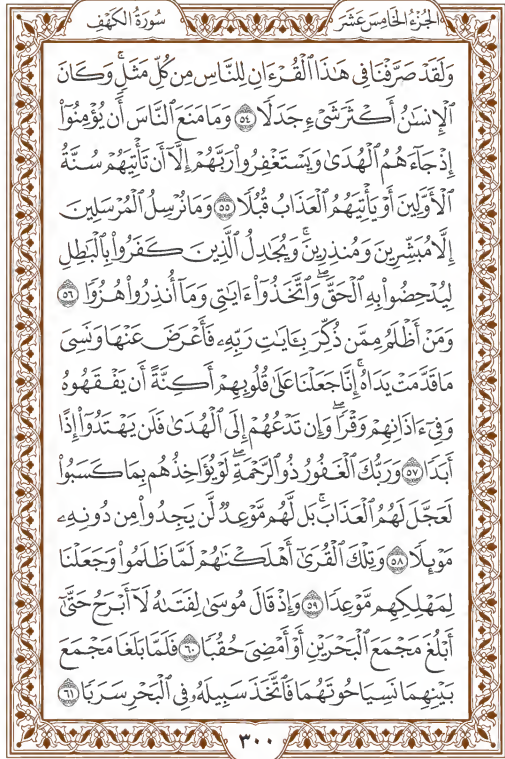 الجزء الخامس عشر
سورة الكهف
وَلَقَدْ صَرَّفْنَا فِي هَٰذَا ٱلْقُرْءَانِ لِلنَّاسِ مِن كُلِّ مَثَلٍۚ وَكَانَ
ٱلْإِنسَٰنُ أَكْثَرَ شَىْءٍ جَدَلًا ۝٥٤ وَمَا مَنَعَ ٱلنَّاسَ أَن يُؤْمِنُوٓا۟
إِذْ جَآءَهُمُ ٱلْهُدَىٰ وَيَسْتَغْفِرُوا۟ رَبَّهُمْ إِلَّآ أَن تَأْتِيَهُمْ سُنَّةُ
ٱلْأَوَّلِينَ أَوْ يَأْتِيَهُمُ ٱلْعَذَابُ قُبُلًا ۝٥٥ وَمَا نُرْسِلُ ٱلْمُرْسَلِينَ
إِلَّا مُبَشِّرِينَ وَمُنذِرِينَۚ وَيُجَٰدِلُ ٱلَّذِينَ كَفَرُوا۟ بِٱلْبَٰطِلِ
لِيُدْحِضُوا۟ بِهِ ٱلْحَقَّۖ وَٱتَّخَذُوٓا۟ ءَايَٰتِى وَمَآ أُنذِرُوا۟ هُزُوًا ۝٥٦
وَمَنْ أَظْلَمُ مِمَّن ذُكِّرَ بِـَٔايَٰتِ رَبِّهِۦ فَأَعْرَضَ عَنْهَا وَنَسِىَ
مَا قَدَّمَتْ يَدَاهُۚ إِنَّا جَعَلْنَا عَلَىٰ قُلُوبِهِمْ أَكِنَّةً أَن يَفْقَهُوهُ
وَفِىٓ ءَاذَانِهِمْ وَقْرًاۖ وَإِن تَدْعُهُمْ إِلَى ٱلْهُدَىٰ فَلَن يَهْتَدُوٓا۟ إِذًا
أَبَدًا ۝٥٧ وَرَبُّكَ ٱلْغَفُورُ ذُو ٱلرَّحْمَةِۖ لَوْ يُؤَاخِذُهُم بِمَا كَسَبُوا۟
لَعَجَّلَ لَهُمُ ٱلْعَذَابَۚ بَل لَّهُم مَّوْعِدٌ لَّن يَجِدُوا۟ مِن دُونِهِۦ
مَوْئِلًا ۝٥٨ وَتِلْكَ ٱلْقُرَىٰٓ أَهْلَكْنَٰهُمْ لَمَّا ظَلَمُوا۟ وَجَعَلْنَا
لِمَهْلِكِهِم مَّوْعِدًا ۝٥٩ وَإِذْ قَالَ مُوسَىٰ لِفَتَىٰهُ لَآ أَبْرَحُ حَتَّىٰٓ
أَبْلُغَ مَجْمَعَ ٱلْبَحْرَيْنِ أَوْ أَمْضِىَ حُقُبًا ۝٦٠ فَلَمَّا بَلَغَا مَجْمَعَ
بَيْنِهِمَا نَسِيَا حُوتَهُمَا فَٱتَّخَذَ سَبِيلَهُۥ فِى ٱلْبَحْرِ سَرَبًا ۝٦١
٣٠٠